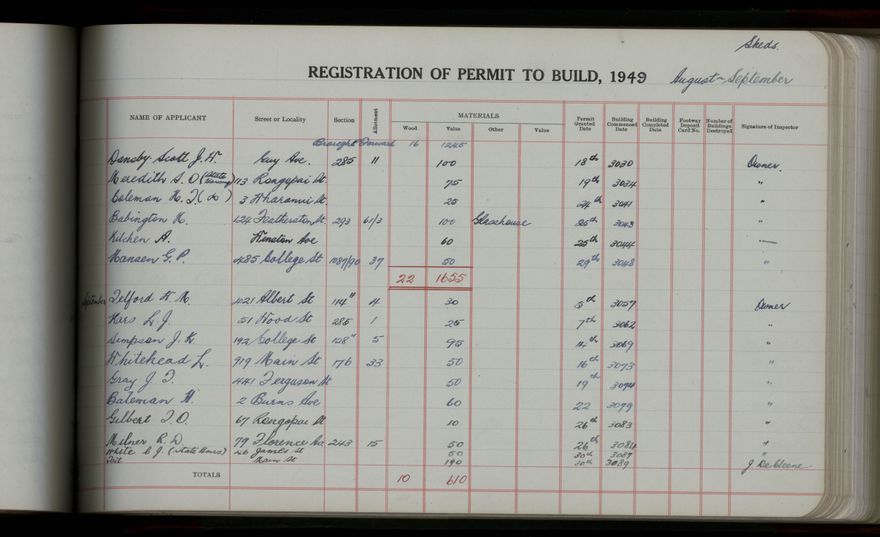 Sheds.
REGISTRATION OF PERMIT TO BUILD, 1949 August - September
NAME OF APPLICANT Street or Locality Section Allotment MATERIALS Wood Value Other Value Permit Granted Date Building Commenced Date Building Completed Date Footway Deposit Card No. Number of Buildings Destroyed Signature of Inspector
Brought Forward 16 1245
Dansby Scott J. H. Guy Ave. 285 11 100 18th 3030 Owner.
Meredith S. O (State Housing) 73 Rongopai St. 75 19th 3034 "
Coleman H. T ( do ) 3 Wharanui St. 25 24th 3041 "
Babington K. 424 Featherston St. 293 61/3 100 Glasshouse 25th 3043 "
Kitchen A. Winston Ave 60 25th 3044 "
Hansen G. P. 485 College St 1089/90 37 50 29th 3048 "
22 1655
September Telford K. M. 421 Albert St 114" 4 30 5th 3057 Owner
Hars L. J. 51 Wood St 285 1 25 7th 3062 "
Simpson J. K. 192 College St 128" 5 95 14th 3069 "
Whitehead L. 919 Main St 176 33 50 16th 3073 "
Gray J. T. 441 Ferguson St 50 19th 3074 "
Bateman H. 2 Burns Ave 60 22 3079 "
Gilbert T. O. 67 Rongopai St 10 26th 3083 "
Milner R. D. 79 Florence Av. 243 15 50 26th 3084 "
White C. J. (State House) 26 James St 50 30th 3087 "
Main St 190 30th 3089 J
TOTALS 10 610